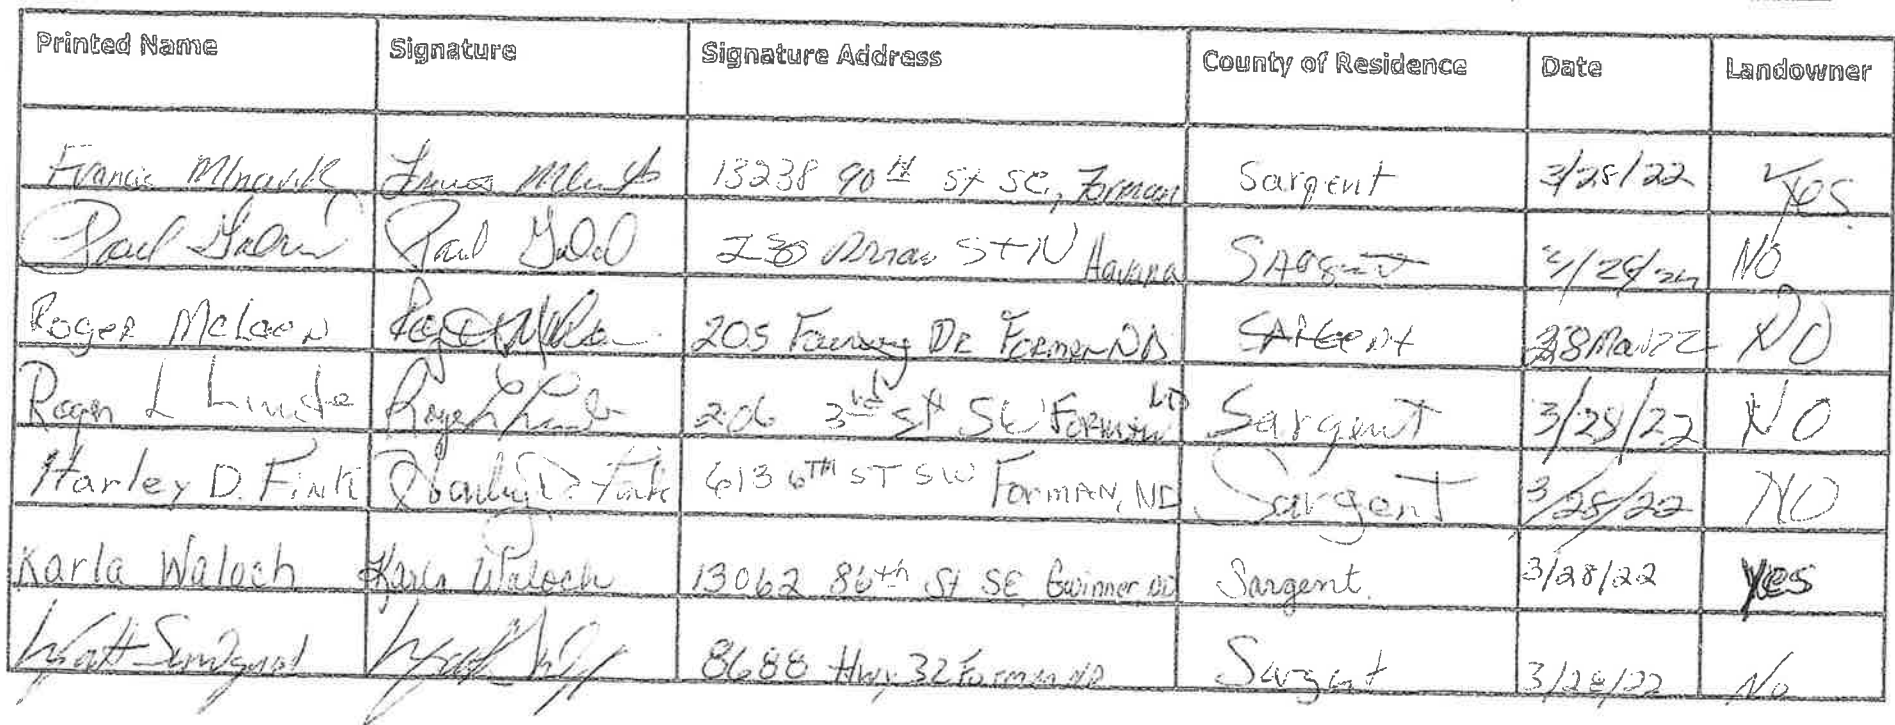 Printed Name Signature Signature Address County of Residence Date Landowner
Francis 13238 90th St SE, Forman Sargent 3/28/22 Yes
Paul Paul St N Havana SArgent 3/28/22 No
Roger McLaen 205 Dr Forman ND SArgent 28Mar22 NO
Roger L 206 3rd St SW Forman ND Sargent 3/28/22 NO
Harley D. Fink Harley D. Fink 613 6TH ST SW Forman, ND Sargent 3/28/22 NO
Karla Waloch Karla Waloch 13062 86th St SE Gwinner ND Sargent 3/28/22 Yes
Wyatt Sundquist Wyatt 8688 Hwy 32 Forman ND Sargent 3/28/22 No